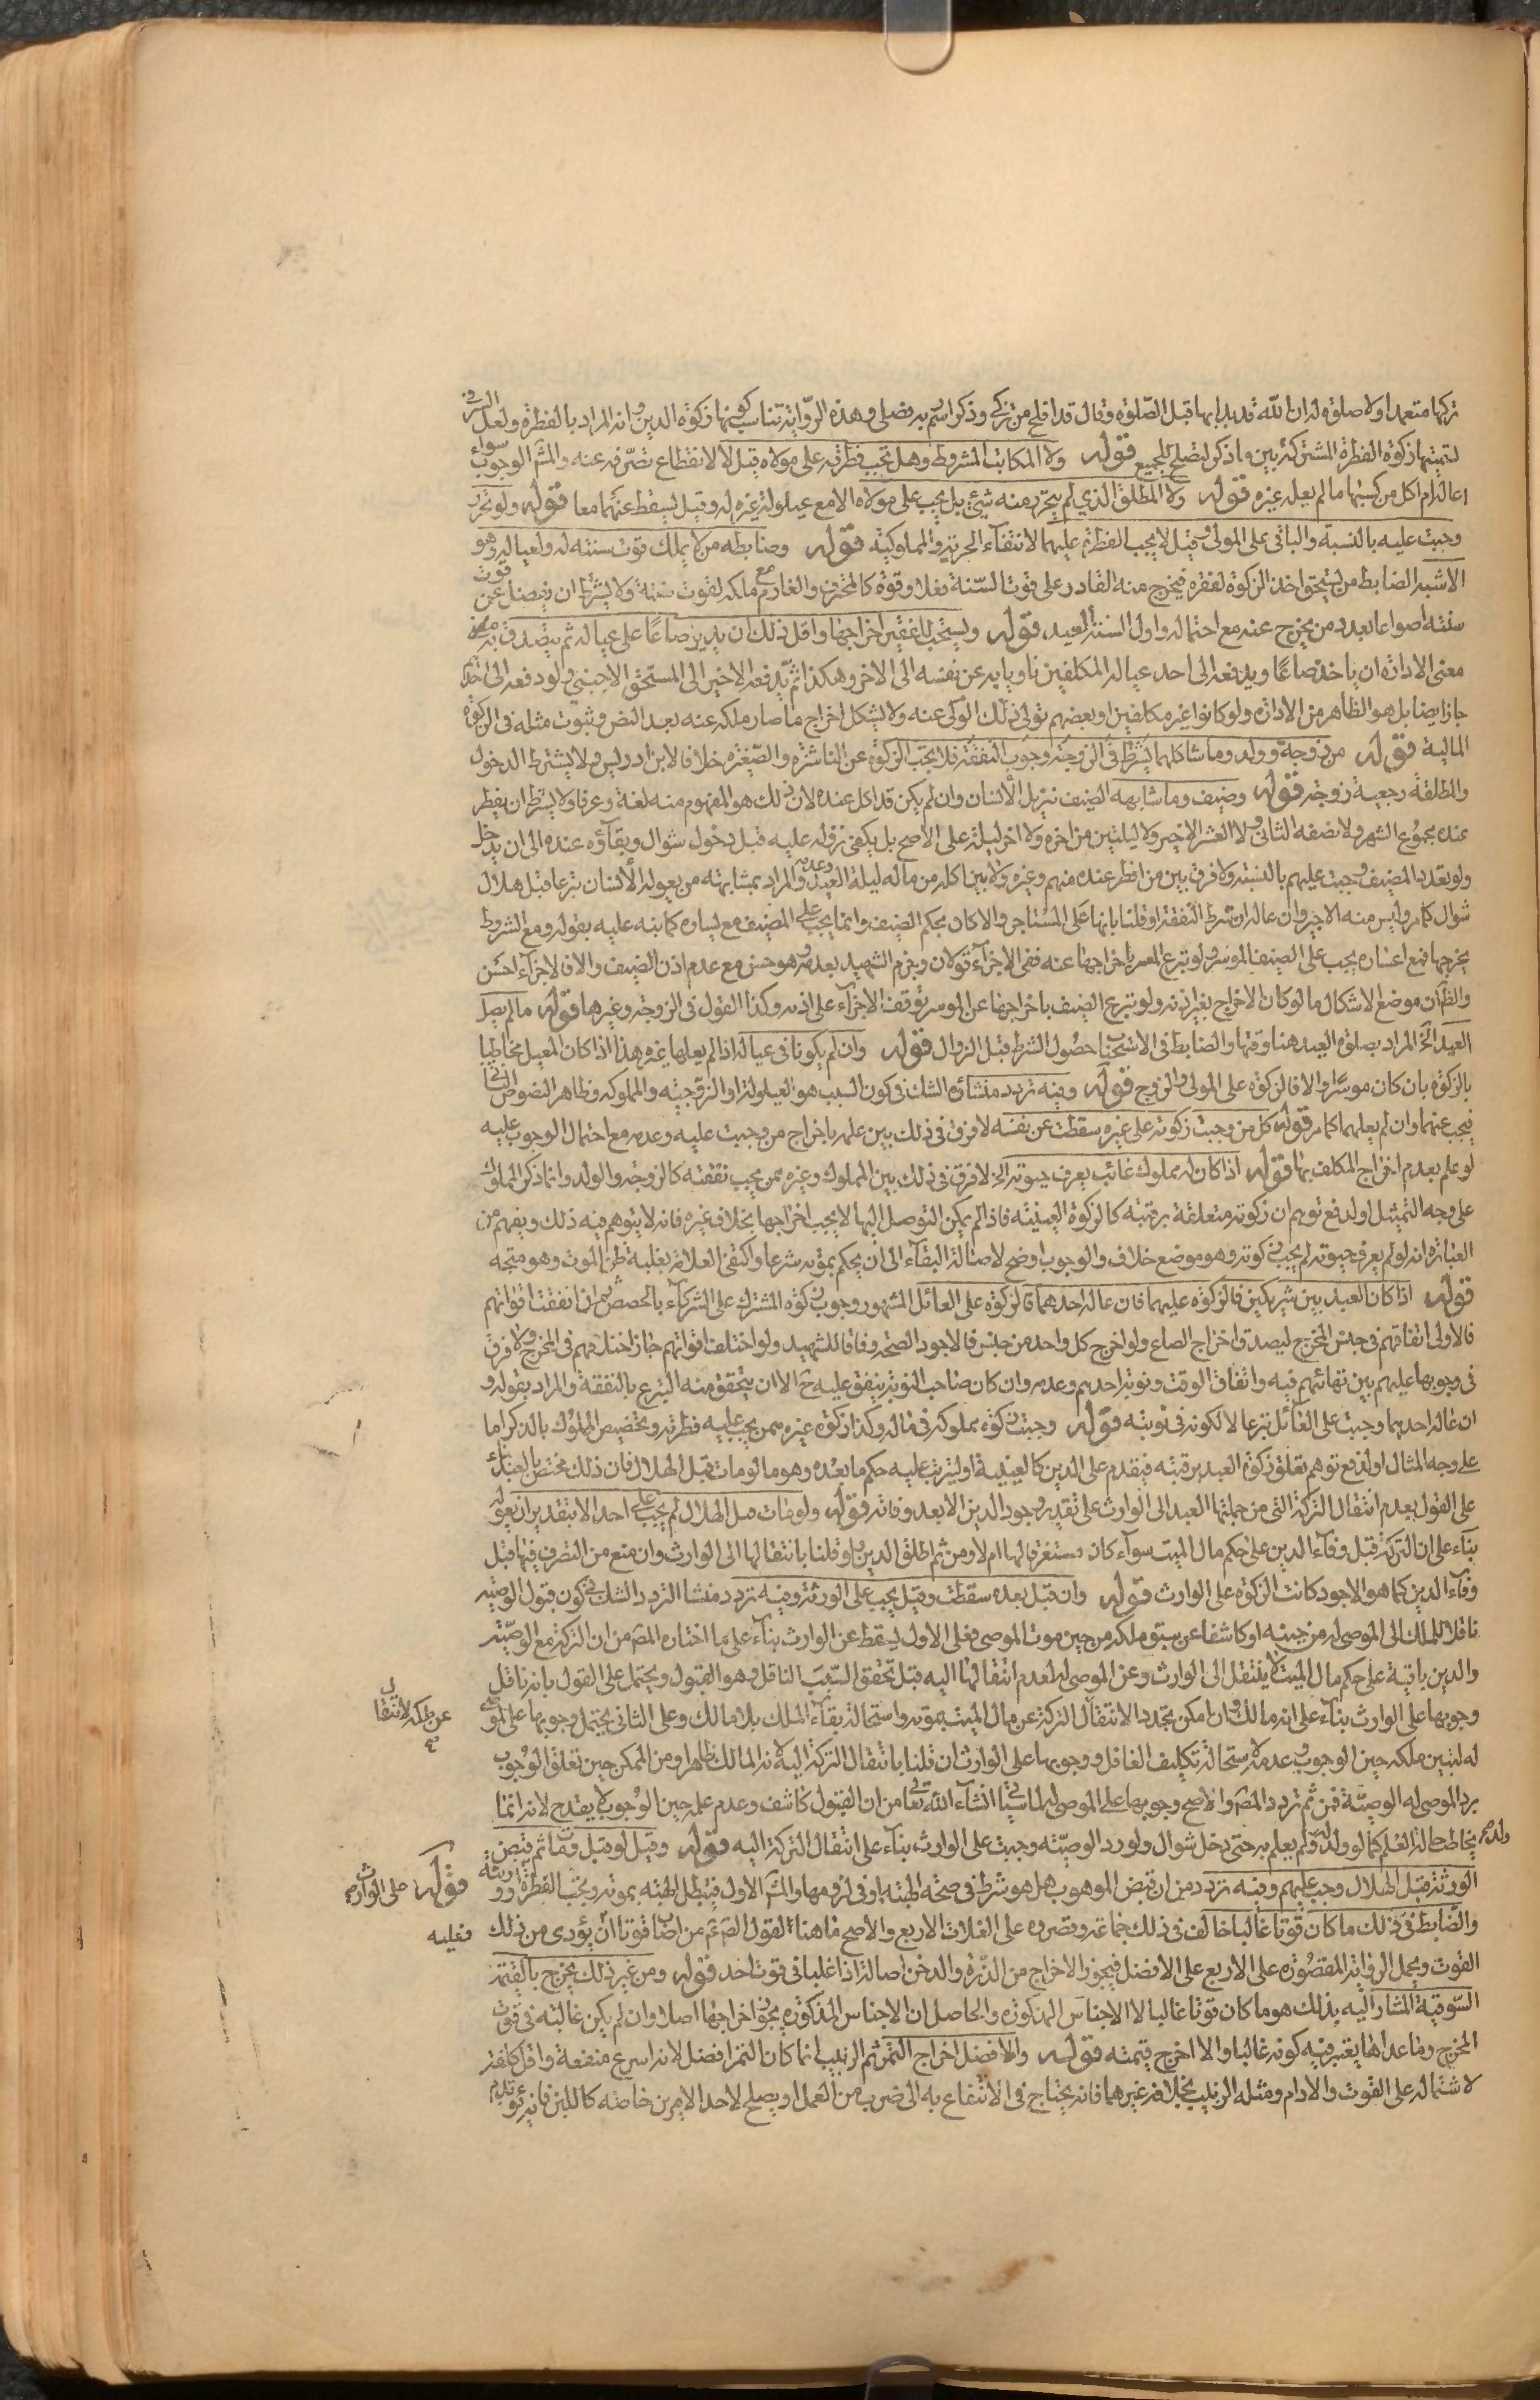 تركها متعمدا ولا صلوة له ان الله قد بدا بها قبل الصلوة وقال قد افلح من تزكى وذكر اسم ربه فصلى وهذه الرواية تناسب كونها زكوة الدين وانه المراد بالفطرة ولعل السر في
تسميتها زكوة الفطرة المشتركة بين ما ذكر لتصلح للجميع قوله ولا المكاتب المشروط وهل تجب فطرته على مولاه قيل لا لانقطاع تصرفه عنه والمشهور الوجوب سواء
اعاله ام اكل من كسبهما ما لم يعله غيره قوله ولا المطلق الذي لم يتحرر منه شيئ بل يجب على مولاه الا مع عيلولة غيره له وقيل يسقط عنهما معا قوله ولو تحرر
وجبت عليه بالنسبة والباقي على المولى وقيل لا يجب الفطرة عليهما لانتفاء الحرية والمملوكية قوله وضابطه من لا يملك قوت سنته له ولعياله وهو
الاشبه الضابط من يستحق اخذ الزكوة لفقره فيخرج منه القادر على قوت السنة فعلا وقوة كالمحترف والغارم مع ملكه لقوت سنة ولا يشترط ان يفضل عن قوت
سنته اصواعا بعدد من يخرج عنه مع احتماله واول السنة العيد قوله ويستحب للفقير اخراجها واقل ذلك ان يدير صاعا على عياله ثم يتصدق به
معنى الادارة ان ياخذ صاعا ويدفعه الى احد عياله المكلفين ناويا به عن نفسه الى الاخر وهكذا ثم يدفعه الاخير الى المستحق الاجنبي ولو دفعه الى احدهم
جاز ايضا بل هو الظاهر من الادارة ولو كانوا غير مكلفين او بعضهم تولى ذلك الولي عنه ولا يشكل اخراج ما صار ملكه عنه بعد النص وثبوت مثله في الزكوة
المالية قوله من زوجة وولد وما شاكلهما يشترط في الزوجة وجوب النفقة فلا تجب الزكوة عن الناشزة والصغيرة خلافا لابن ادريس ولا يشترط الدخول
والمطلقة رجعية زوجة قوله وضيف وما شابهه الضيف نزيل الانسان وان لم يكن قد اكل عنده لان ذلك هو المفهوم منه لغة وعرفا ولا يشترط ان يفطر
عنده مجموع الشهر ولا نصفه الثاني ولا العشر الاخير ولا ليلتين من اخره ولا اخر ليلة على الاصح بل يكفي نزوله عليه قبل دخول شوال وبقاؤه عنده الى ان يدخل
ولو تعدد المضيف وجبت عليهم بالنسبة ولا فرق بين من افطر عنده منهم وغيره ولا بين اكله من ماله ليلة العيد وعدمه والمراد بمشابهته من يعوله الانسان تبرعا قبل هلال
شوال كما مر وليس منه الاجير وان عاله ان شرط النفقة او قلنا بانها على المستاجر والا كان بحكم الضيف وانما يجب على المضيف مع يساره كما نبه عليه بقوله ومع الشروط
يخرجها فمع اعساره يجب على الضيف الموسر ولو تبرع المعسر باخراجها عنه ففي الاجزاء قولان وجزم الشهيد بعدمه وهو حسن مع عدم اذن الضيف والا فالاجزاء احسن
والظ ان موضع الاشكال ما لو كان الاخراج بغير اذنه ولو تبرع الضيف باخراجها عن الموسر توقف الاجزاء على اذنه وكذا القول في الزوجة وغيرها قوله ما لم يصل
العيد الخ المراد بصلوة العيد هنا وقتها والضابط في الاستحباب حصول الشرط قبل الزوال قوله وان لم يكونا في عياله اذا لم يعلهما غيره هذا اذا كان المعيل مخاطبا
بالزكوة بان كان موسرا والا فالزكوة على المولى والزوج قوله وفيه تردد منشاؤه الشك في كون السبب هو العيلولة او الزوجية والمملوكية وظاهر النصوص الثاني
فيجب عنهما وان لم يعلهما كما مر قوله كل من وجبت زكوته على غيره سقطت عن نفسه لا فرق في ذلك بين علمه باخراج من وجبت عليه وعدمه مع احتمال الوجوب عليه
لو علم بعدم اخراج المكلف بها قوله اذا كان له مملوك غائب يعرف حيوته الخ لا فرق في ذلك بين المملوك وغيره ممن يجب نفقته كالزوجة والولد وانما ذكر المملوك
على وجه التمثيل او لدفع توهم ان زكوته متعلقة برقبته كالزكوة العينية فاذا لم يكن التوصل اليها لا يجب اخراجها بخلاف غيره فانه لا يتوهم فيه ذلك ويفهم من
العبارة انه لو لم يعرف حيوته لم يجب زكوته وهو موضع خلاف والوجوب اوضح لاصالة البقاء الى ان يحكم بموته شرعا واكتفى العلامة بغلبة ظن الموت وهو متجه
قوله اذا كان العبد بين شريكين فالزكوة عليهما فان عاله احدهما فالزكوة على العائل المشهور وجوب زكوة المشترك على الشركاء بالحصص ثم ان اتفقت اقواتهم
فالاولى اتفاقهم في جنس المخرج ليصدق اخراج الصاع ولو اخرج كل واحد من جنس فالاجود الصحة وفاقا للشهيد ولو اختلفت اقواتهم جاز اختلافهم في المخرج ولا فرق
في وجوبها عليهم بين تهائيهم فيه واتفاق الوقت ونوبة احدهم وعدمه وان كان صاحب النوبة ينفق عليه ح الا ان يتحقق منه التبرع بالنفقة والمراد بقوله و
ان عاله احدهما وجبت على العائل تبرعا لا لكونه في نوبته قوله وجبت زكوة مملوكه في ماله وكذا زكوة غيره ممن يجب عليه فطرته وتخصيص المملوك بالذكر اما
على وجه المثال او لدفع توهم تعلق زكوة العبد برقبته فيقدم على الدين كالعينية او ليترتب عليه حكم ما بعده وهو ما لو مات قبل الهلال فان ذلك مختص بالعبد بناء
على القول بعدم انتقال التركة التي من جملتها العبد الى الوارث على تقدير وجود الدين الا بعد وفائه قوله ولو مات قبل الهلال لم يجب على احد الا بتقدير ان يعوله
بناء على ان التركة قبل وفاء الدين على حكم مال الميت سواء كان مستغرقا لها ام لا ومن ثم اطلق الدين ولو قلنا بانتقالها الى الوارث وان منع من التصرف فيها قبل
وفاء الدين كما هو الاجود كانت الزكوة على الوارث قوله وان قبل بعده سقطت وقيل يجب على الورثة وفيه تردد منشا التردد الشك في كون قبول الوصية
ناقلا للملك الى الموصى له من حينه او كاشفا عن سبق ملكه من حين موت الموصي فعلى الاول يسقط عن الوارث بناء على ما اختاره المصنف من ان التركة مع الوصية
والدين باقية على حكم مال الميت لا ينتقل الى الوارث وعن الموصى له لعدم انتقالها اليه قبل تحقق السبب الناقل وهو القبول ويحتمل على القول بانه ناقل
وجوبها على الوارث بناء على انه مالك وان امكن تجدد الانتقال التركة عن مال الميت بموته واستحالة بقاء الملك بلا مالك وعلى الثاني يحتمل وجوبها على الموصى
عن ملكه لانتقال
له لتبين ملكه حين الوجوب وعدمه لاستحالة تكليف الغافل ووجوبها على الوارث ان قلنا بانتقال التركة اليه لانه المالك ظاهرا ومن الممكن حين تعلق الوجوب
برد الموصى له الوصية فمن ثم تردد المصنف والاصح وجوبها على الموصى له لما سياتي انشاء الله تعا من ان القبول كاشف وعدم علمه حين الوجوب لا يقدح لانه انما
يخاطب حالة العلم كما لو ولد له ولد ولم يعلم به حتى دخل شوال ولو رد الوصية وجبت على الوارث بناء على انتقال التركة اليه قوله وقيل لو قبل ومات ثم قبض
الورثة قبل الهلال وجب عليهم وفيه تردد من ان قبض الموهوب هل هو شرط في صحة الهبة او في لزومها والمشهور الاول فتبطل الهبة بموته وتجب الفطرة
قوله على الوارث
والضابط في ذلك ما كان قوتا غالبا خالف في ذلك جماعة وقصروه على الغلات الاربع والاصح ما هنا لقول الصادق ع من اصاب قوتا ان يؤدى من ذلك
فعليه
القوت ويحمل الرواية المقصورة على الاربع على الافضل فيجوز الاخراج من الذرة والدخن اصالة اذا غلبا في قوت احد قوله ومن غير ذلك يخرج بالقيمة
السوقية المشار اليه بذلك هو ما كان قوتا غالبا لا الاجناس المذكورة والحاصل ان الاجناس المذكورة يجوز اخراجها اصلا وان لم يكن غالبة في قوت
المخرج وما عداها يعتبر فيه كونه غالبا والا اخرج قيمته قوله والافضل اخراج التمر ثم الزبيب انما كان التمر افضل لانه اسرع منفعة واقل كلفة
لاشتماله على القوت والادام ومثله الزبيب بخلاف غيرهما فانه يحتاج في الانتفاع به الى ضرب من العمل او يصلح لاحد الامرين خاصة كاللبن فانه